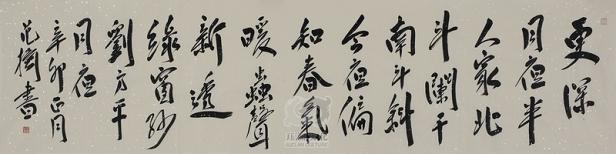 更深
月夜半
人家北
斗闌干
南斗斜
今夜偏
知春氣
暖蟲聲
新透
綠窗紗
劉方平
月夜
辛卯正月
書